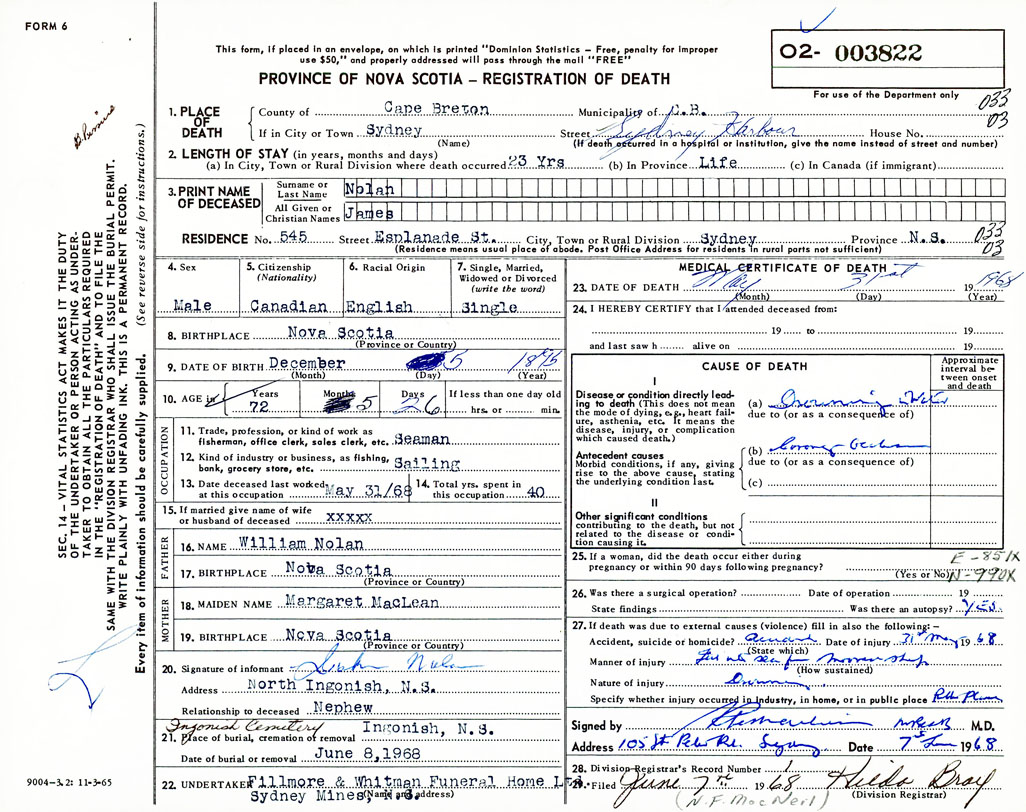 FORM 6
This form, if placed in an envelope, on which is printed "Dominion Statistics — Free, penalty for improper
use $50," and properly addressed will pass through the mail "FREE"
PROVINCE OF NOVA SCOTIA — REGISTRATION OF DEATH
O2- 003822
For use of the Department only
033
03
1. PLACE OF DEATH
County of Cape Breton Municipality of C.B.
If in City or Town Sydney Street Sydney Harbour House No.
(Name) (If death occurred in a hospital or institution, give the name instead of street and number)
2. LENGTH OF STAY (in years, months and days)
(a) In City, Town or Rural Division where death occurred 23 Yrs (b) In Province Life (c) In Canada (if immigrant)
3. PRINT NAME OF DECEASED
Surname or Last Name Nolan
All Given or Christian Names James
RESIDENCE No. 545 Street Esplanade St. City, Town or Rural Division Sydney Province N.S.
(Residence means usual place of abode. Post Office Address for residents in rural parts not sufficient)
033
03
4. Sex
Male
5. Citizenship
(Nationality)
Canadian
6. Racial Origin
English
7. Single, Married, Widowed or Divorced
(write the word)
Single
8. BIRTHPLACE Nova Scotia
(Province or Country)
9. DATE OF BIRTH December 5 1895
(Month) (Day) (Year)
10. AGE in Years 72 Months 5 Days 26 If less than one day old hrs. or min.
OCCUPATION
11. Trade, profession, or kind of work as
fisherman, office clerk, sales clerk, etc. Seaman
12. Kind of industry or business, as fishing,
bank, grocery store, etc. Sailing
13. Date deceased last worked at this occupation May 31/68
14. Total yrs. spent in this occupation 40
15. If married give name of wife
or husband of deceased xxxxx
FATHER
16. NAME William Nolan
17. BIRTHPLACE Nova Scotia
(Province or Country)
MOTHER
18. MAIDEN NAME Margaret MacLean
19. BIRTHPLACE Nova Scotia
(Province or Country)
20. Signature of informant Nolan
Address North Ingonish, N.S.
Relationship to deceased Nephew
Ingonish Cemetery Ingonish, N.S.
21. Place of burial, cremation or removal
Date of burial or removal June 8, 1968
22. UNDERTAKER Fillmore & Whitman Funeral Home Ltd.
Sydney Mines, N.S.
(Name and address)
MEDICAL CERTIFICATE OF DEATH
23. DATE OF DEATH May 31st 1968
(Month) (Day) (Year)
24. I HEREBY CERTIFY that I attended deceased from:
19 to 19
and last saw h alive on 19
CAUSE OF DEATH
Approximate interval between onset and death
I
Disease or condition directly leading to death (This does not mean the mode of dying, e.g., heart failure, asthenia, etc. It means the disease, injury, or complication which caused death.)
(a) Drowning
due to (or as a consequence of)
Antecedent causes
Morbid conditions, if any, giving rise to the above cause, stating the underlying condition last.
(b)
due to (or as a consequence of)
(c)
II
Other significant conditions
contributing to the death, but not related to the disease or condition causing it.
25. If a woman, did the death occur either during
pregnancy or within 90 days following pregnancy?
(Yes or No)
E-851X
N-990X
26. Was there a surgical operation? Date of operation 19
State findings Was there an autopsy? YES
27. If death was due to external causes (violence) fill in also the following: —
Accident, suicide or homicide? Date of injury 31st May 1968
(State which)
Manner of injury
(How sustained)
Nature of injury Drowning
Specify whether injury occurred in Industry, in home, or in public place
Signed by M.D.
Address 105 St Peter Rd. Sydney Date 7th June 1968
28. Division Registrar's Record Number
29. Filed June 7th 1968 Hilda Bray
(Division Registrar)
(N.F. MacNeil)
SEC. 14 – VITAL STATISTICS ACT MAKES IT THE DUTY
OF THE UNDERTAKER OR PERSON ACTING AS UNDER-
TAKER TO OBTAIN ALL THE PARTICULARS REQUIRED
IN THE "REGISTRATION OF DEATH" AND TO FILE THE
SAME WITH THE DIVISION REGISTRAR WHO SHALL ISSUE THE BURIAL PERMIT.
WRITE PLAINLY WITH UNFADING INK. THIS IS A PERMANENT RECORD.
Every item of information should be carefully supplied. (See reverse side for instructions.)
9004-3.2: 11-3-65